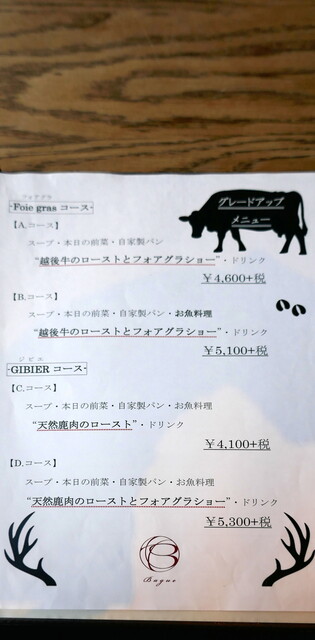 フォアグラ
Foie gras コース
グレードアップ
メニュー
【A.コース】
スープ・本日の前菜・自家製パン
“越後牛のローストとフォアグラショー”・ドリンク
￥4,600+税
【B.コース】
スープ・本日の前菜・自家製パン・お魚料理
“越後牛のローストとフォアグラショー”・ドリンク
￥5,100+税
ジビエ
GIBIER コース
【C.コース】
スープ・本日の前菜・自家製パン・お魚料理
“天然鹿肉のロースト”・ドリンク
￥4,100+税
【D.コース】
スープ・本日の前菜・自家製パン・お魚料理
“天然鹿肉のローストとフォアグラショー”・ドリンク
￥5,300+税
Bague